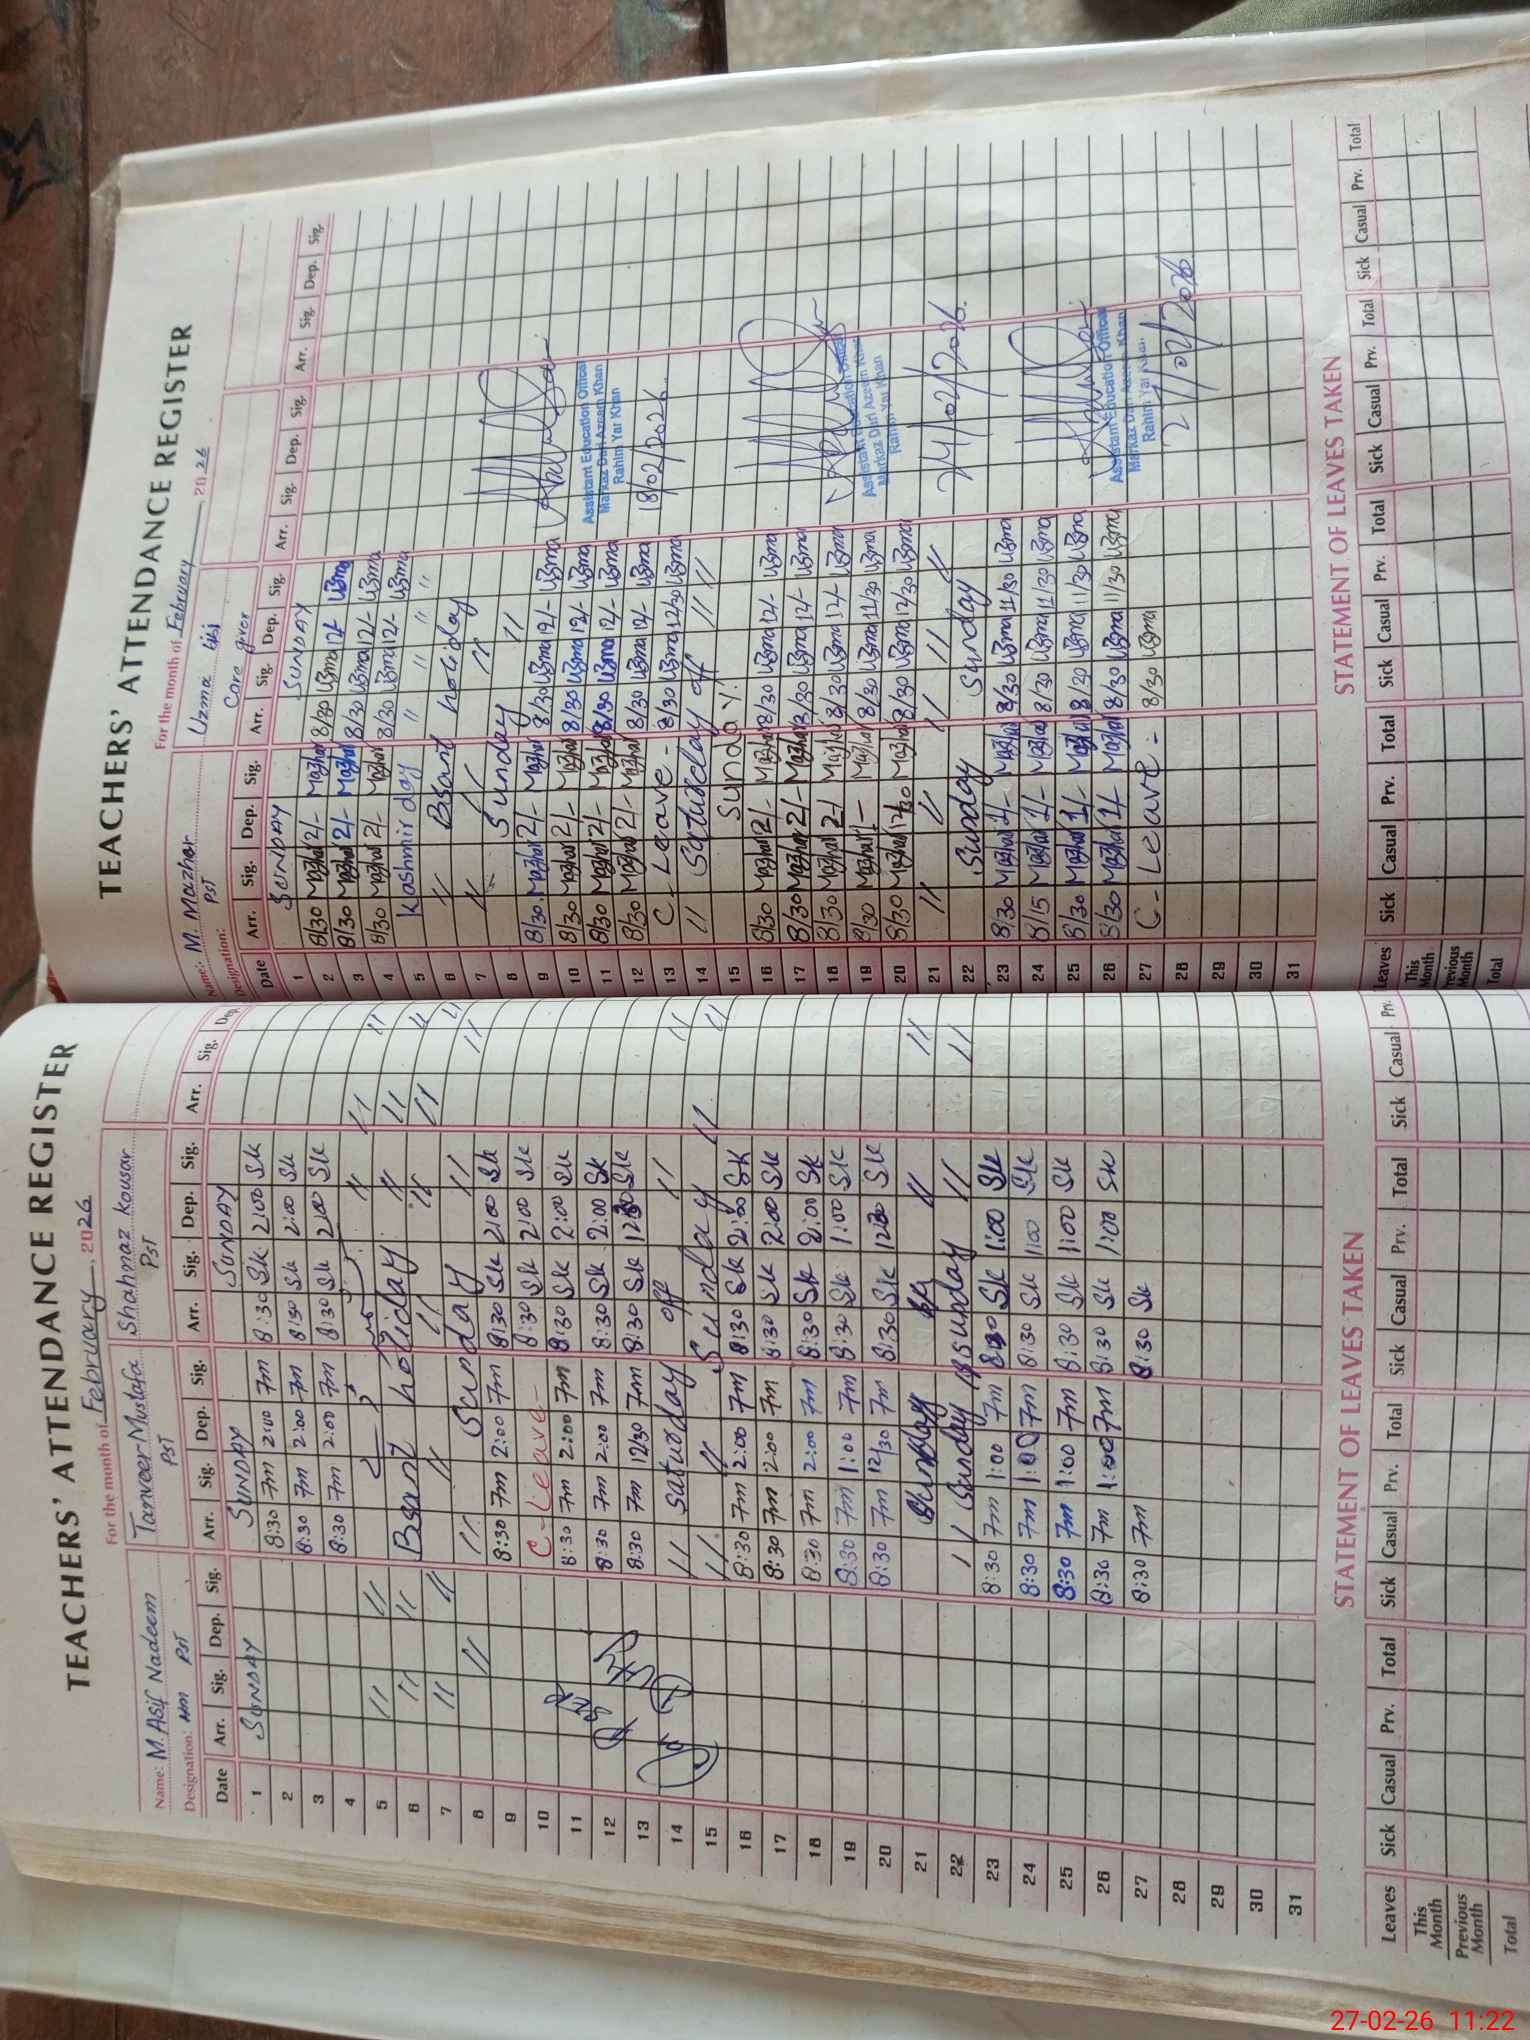 TEACHERS' ATTENDANCE REGISTER
For the month of February, 2026
Name: M. Asif Nadeem Tanveer Mustafa Shahnaz Kousar
Designation: PST PST PST
Date Arr. Sig. Dep. Sig. Arr. Sig. Dep. Sig. Arr. Sig. Dep. Sig. Arr. Sig. Dep.
1 SUNDAY SUNDAY SUNDAY
2 8:30 7m 2:00 7m 8:30 Sk 2:00 Sk
3 8:30 7m 2:00 7m 8:30 Sk 2:00 Sk
4 8:30 7m 2:00 7m 8:30 Sk 2:00 Sk
5 " " " " "
6 " " Bsant holiday " " "
7 " " " " " " "
8 " " Sunday " "
9 8:30 7m 2:00 7m 8:30 Sk 2:00 Sk
10 C-Leave- 8:30 Sk 2:00 Sk
11 8:30 7m 2:00 7m 8:30 Sk 2:00 Sk
12 8:30 7m 2:00 7m 8:30 Sk 2:00 Sk
13 8:30 7m 12/30 7m 8:30 Sk 12:30 Sk
14 " saturday off " "
15 " " Sunday " "
16 8:30 7m 2:00 7m 8:30 Sk 2:00 Sk
17 8:30 7m 2:00 7m 8:30 Sk 2:00 Sk
18 8:30 7m 2:00 7m 8:30 Sk 2:00 Sk
19 8:30 7m 1:00 7m 8:30 Sk 1:00 Sk
20 8:30 7m 12/30 7m 8:30 Sk 12:30 Sk
21 " "
22 Sunday sunday " "
23 8:30 7m 1:00 7m 8:30 Sk 1:00 Sk
24 8:30 7m 1:00 7m 8:30 Sk 1:00 Sk
25 8:30 7m 1:00 7m 8:30 Sk 1:00 Sk
26 8:30 7m 1:00 7m 8:30 Sk 1:00 Sk
27 8:30 7m 8:30 Sk
28
29
30
31
STATEMENT OF LEAVES TAKEN
Leaves Sick Casual Prv. Total Sick Casual Prv. Total Sick Casual Prv. Total Sick Casual Prv.
This Month
Previous Month
Total
TEACHERS' ATTENDANCE REGISTER
For the month of February, 2026
Name: M. Mazher Uzma
Designation: PST Care giver
Date Arr. Sig. Dep. Sig. Arr. Sig. Dep. Sig. Arr. Sig. Dep. Sig. Arr. Sig. Dep. Sig.
1 SUNDAY SUNDAY
2 8/30 Mazhar 2/- Mazhar 8/30 Uzma 12/- Uzma
3 8/30 Mazhar 2/- Mazhar 8/30 Uzma 12/- Uzma
4 8/30 Mazhar 2/- Mazhar 8/30 Uzma 12/- Uzma
5 Kashmir day " " " "
6 " Bsant holiday
7 " " "
8 Sunday "
9 8/30 Mazhar 2/- Mazhar 8/30 Uzma 12/- Uzma
10 8/30 Mazhar 2/- Mazhar 8/30 Uzma 12/- Uzma
11 8/30 Mazhar 2/- Mazhar 8/30 Uzma 12/- Uzma
12 8/30 Mazhar 2/- Mazhar 8/30 Uzma 12/- Uzma
13 C-Leave- 8/30 Uzma 12/30 Uzma
14 " Saturday off " "
15 Sunday
16 8/30 Mazhar 2/- Mazhar 8/30 Uzma 12/- Uzma
17 8/30 Mazhar 2/- Mazhar 8/30 Uzma 12/- Uzma
18 8/30 Mazhar 2/- Mazhar 8/30 Uzma 12/- Uzma
19 8/30 Mazhar 1- Mazhar 8/30 Uzma 11/30 Uzma
20 8/30 Mazhar 12/30 Mazhar 8/30 Uzma 12/30 Uzma
21 " " " " "
22 Sunday Sunday
23 8/30 Mazhar 1/- Mazhar 8/30 Uzma 11/30 Uzma
24 8/15 Mazhar 1/- Mazhar 8/30 Uzma 11/30 Uzma
25 8/30 Mazhar 1/- Mazhar 8/30 Uzma 11/30 Uzma
26 8/30 Mazhar 1/- Mazhar 8/30 Uzma 11/30 Uzma
27 C-Leave- 8/30 Uzma
28
29
30
31
Assistant Education Officer
Markaz Dari Azeem Khan
Rahim Yar Khan
18/02/2026
Assistant Education Officer
Markaz Dari Azeem Khan
Rahim Yar Khan
24/02/2026.
Assistant Education Officer
Markaz Dari Azeem Khan
Rahim Yar Khan
27/02/2026
STATEMENT OF LEAVES TAKEN
Leaves Sick Casual Prv. Total Sick Casual Prv. Total Sick Casual Prv. Total Sick Casual Prv. Total
This Month
Previous Month
Total
27-02-26 11:22